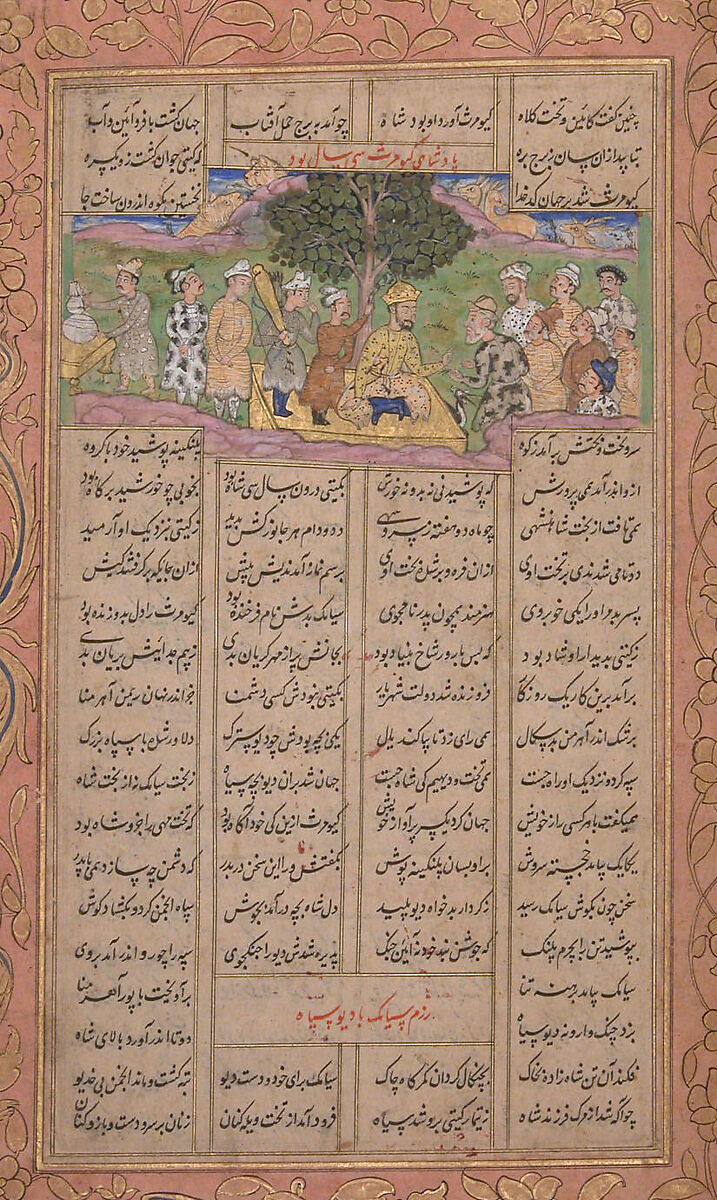 چنین گفت کآئین و تخت کلاه کیومرث آورد او بود شاه چو آمد به برج حمل آفتاب جهان گشت با فر و آئین و آب
بتابید ازان سان ز برج بره پادشاهی کیومرث سی سال بود که گیتی جوان گشت زو یکسره
کیومرث شد بر جهان کدخدا نخستین بکوه اندرون ساخت جا
سر و تخت و بختش برآمد ز کوه پلنگینه پوشید خود با گروه
ازو اندر آمد همی پرورش که پوشیدنی نو بد و نو خورش بگیتی درون سال سی شاه بود بخوبی چو خورشید بر گاه بود
همی تافت از تخت شاهنشهی چو ماه دو هفته ز سرو سهی دد و دام هر جانور کش بدید ز گیتی نزدیک او آرمید
دوتا می شدندی بر تخت اوی ازان فره و برشده بخت اوی برسم نماز آمدندیش پیش ازان جایگه برگرفتند کیش
پسر بد مر او را یکی خوبروی هنرمند همچون پدر نامجوی سیامک بدش نام فرخنده بود کیومرث را دل بدو زنده بود
ز گیتی بدیدار او شاد بود که بس بارور شاخ بنیاد بود بجانش بر از مهر گریان بدی ز بیم جدائیش بریان بدی
برآمد برین کار یک روزگار فروزنده شد دولت شهریار بگیتی نبودش کسی دشمنا جز اندر نهان ریمن آهرمنا
برشک اندر آهرمن بدسگال همی رای زد تا بیاکند یال یکی بچه بودش چو دیو سترک دلاور شده با سپاه بزرگ
سپه کرد و نزدیک او راه جست همی تخت و دیهیم کی شاه جست جهان شد بران دیو بچه سیاه ز بخت سیامک نه از بخت شاه
همیگفت با هر کسی راز خویش جهان کرد یکسر پر آواز خویش کیومرث ازین کی خود آگاه بود که تخت مهی را جزو شاه بود
یکایک بیامد خجسته سروش برو بسان پلنگینه پوش بگفتش ورا این سخن دربدر که دشمن چه سازد همی با پدر
سخن چون بگوش سیامک رسید ز کردار بدخواه دیو پلید دل شاه بچه درآمد بجوش سپاه انجمن کرد و بگشاد گوش
بپوشید تن را بچرم پلنگ که جوشن نبد خود نه آئین جنگ پذیره شدش دیو را جنگجوی سپه را چو رو اندر آمد بروی
سیامک بیامد برهنه تنا رزم سیامک با دیو سیاه برآویخت با پور آهرمنا
بزد چنگ وارونه دیو سیاه دوتا اندر آورد بالای شاه
فکند آن تن شاه زاده بخاک بچنگال کردان کمرگاه چاک سیامک برای خود و دست دیو تبه گشت و ماند انجمن بی خدیو
چو آگه شد از مرگ فرزند شاه ز تیمار گیتی برو شد سیاه فرود آمد از تخت ویله کنان زنان بر سر و دست و بازو کنان